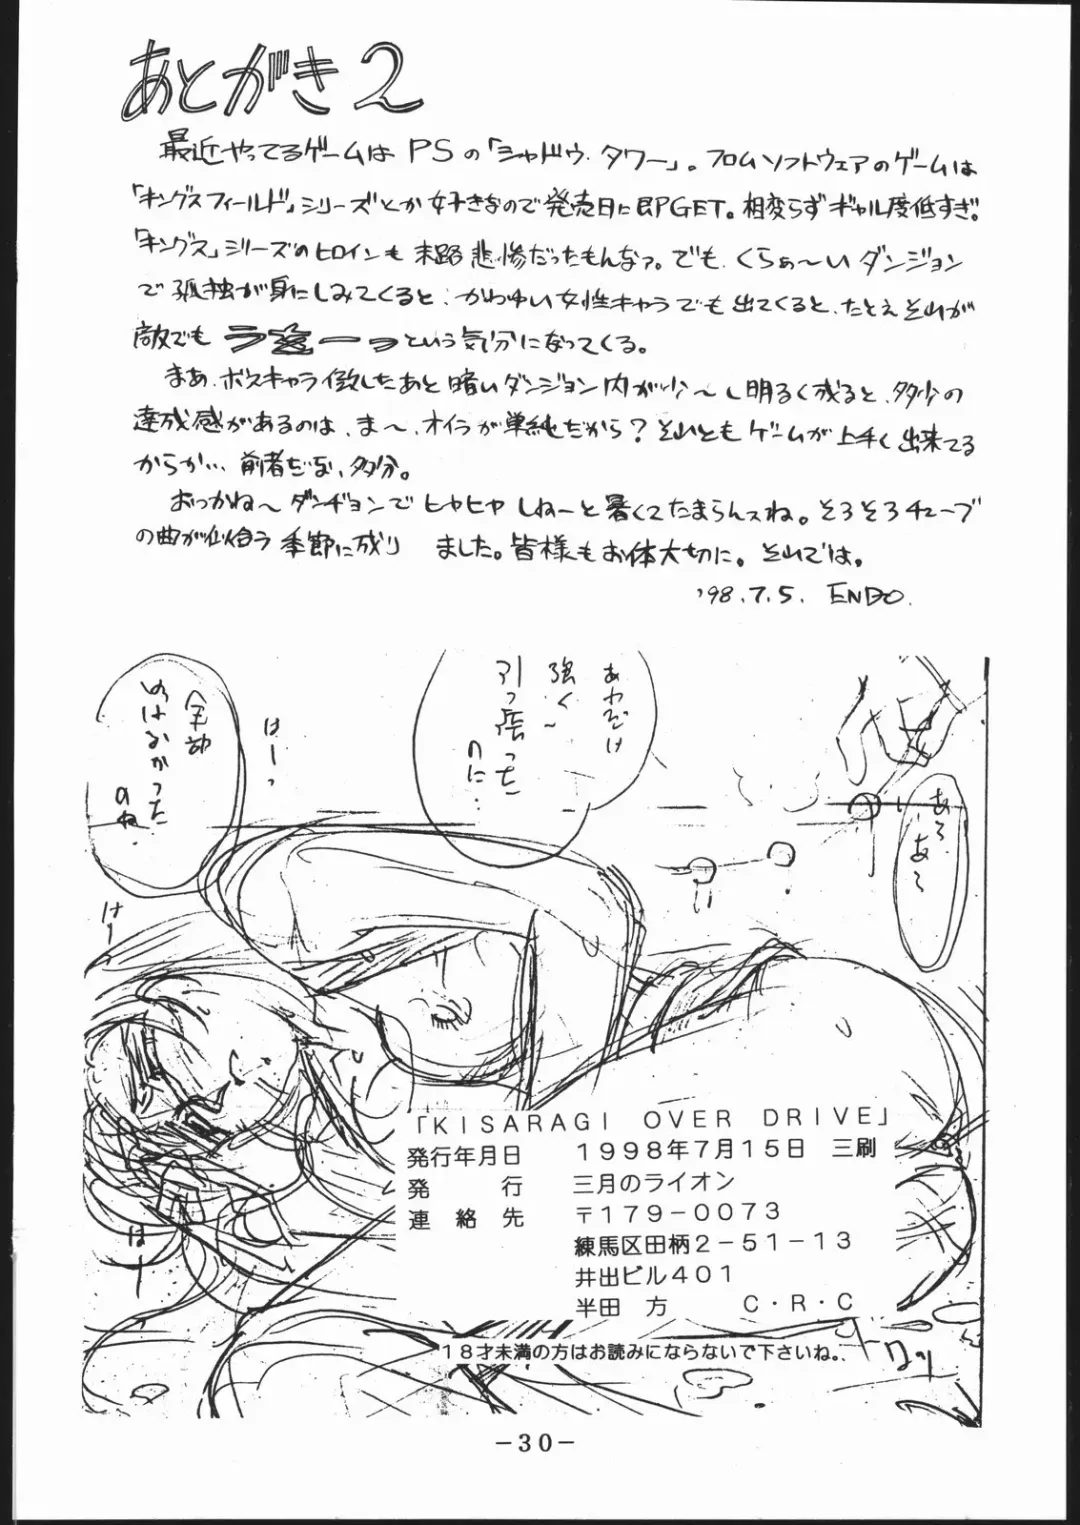 あとがき2
最近やってるゲームはPSの「シャドウ・タワー」。フロムソフトウェアのゲームは
「キングスフィールド」シリーズとか好きなので発売日に即GET。相変らずギャル度低すぎ。
「キングス」シリーズのヒロインも末路悲惨だったもんなァ。でも、くらぁ〜いダンジョン
で孤独が身にしみてくると、かわゆい女性キャラでも出てくると、たとえそれが
敵でも という気分になってくる。
まあ、ボスキャラ倒したあと暗いダンジョン内が少〜し明るく成ると、多少の
達成感があるのは、ま〜、オイラが単純だから？それともゲームが上手く出来てる
からか…、前者だな、多分。
おっかね〜ダンヂョンでヒヤヒヤしねーと暑くてたまらんスね。そろそろチューブ
の曲が似合う季節に成りました。皆様もお体大切に。それでは。
'98.7.5. ENDO.
あれだけ
強く〜
引っ張った
のに…
あろ
あろ
全部
のはなかった
のね
はーっ
はー
はー
「KISARAGI OVER DRIVE」
発行年月日 1998年7月15日 三刷
発行 三月のライオン
連絡先 〒179-0073
練馬区田柄2-51-13
井出ビル401
半田 方 C・R・C
18才未満の方はお読みにならないで下さいね。
-30-